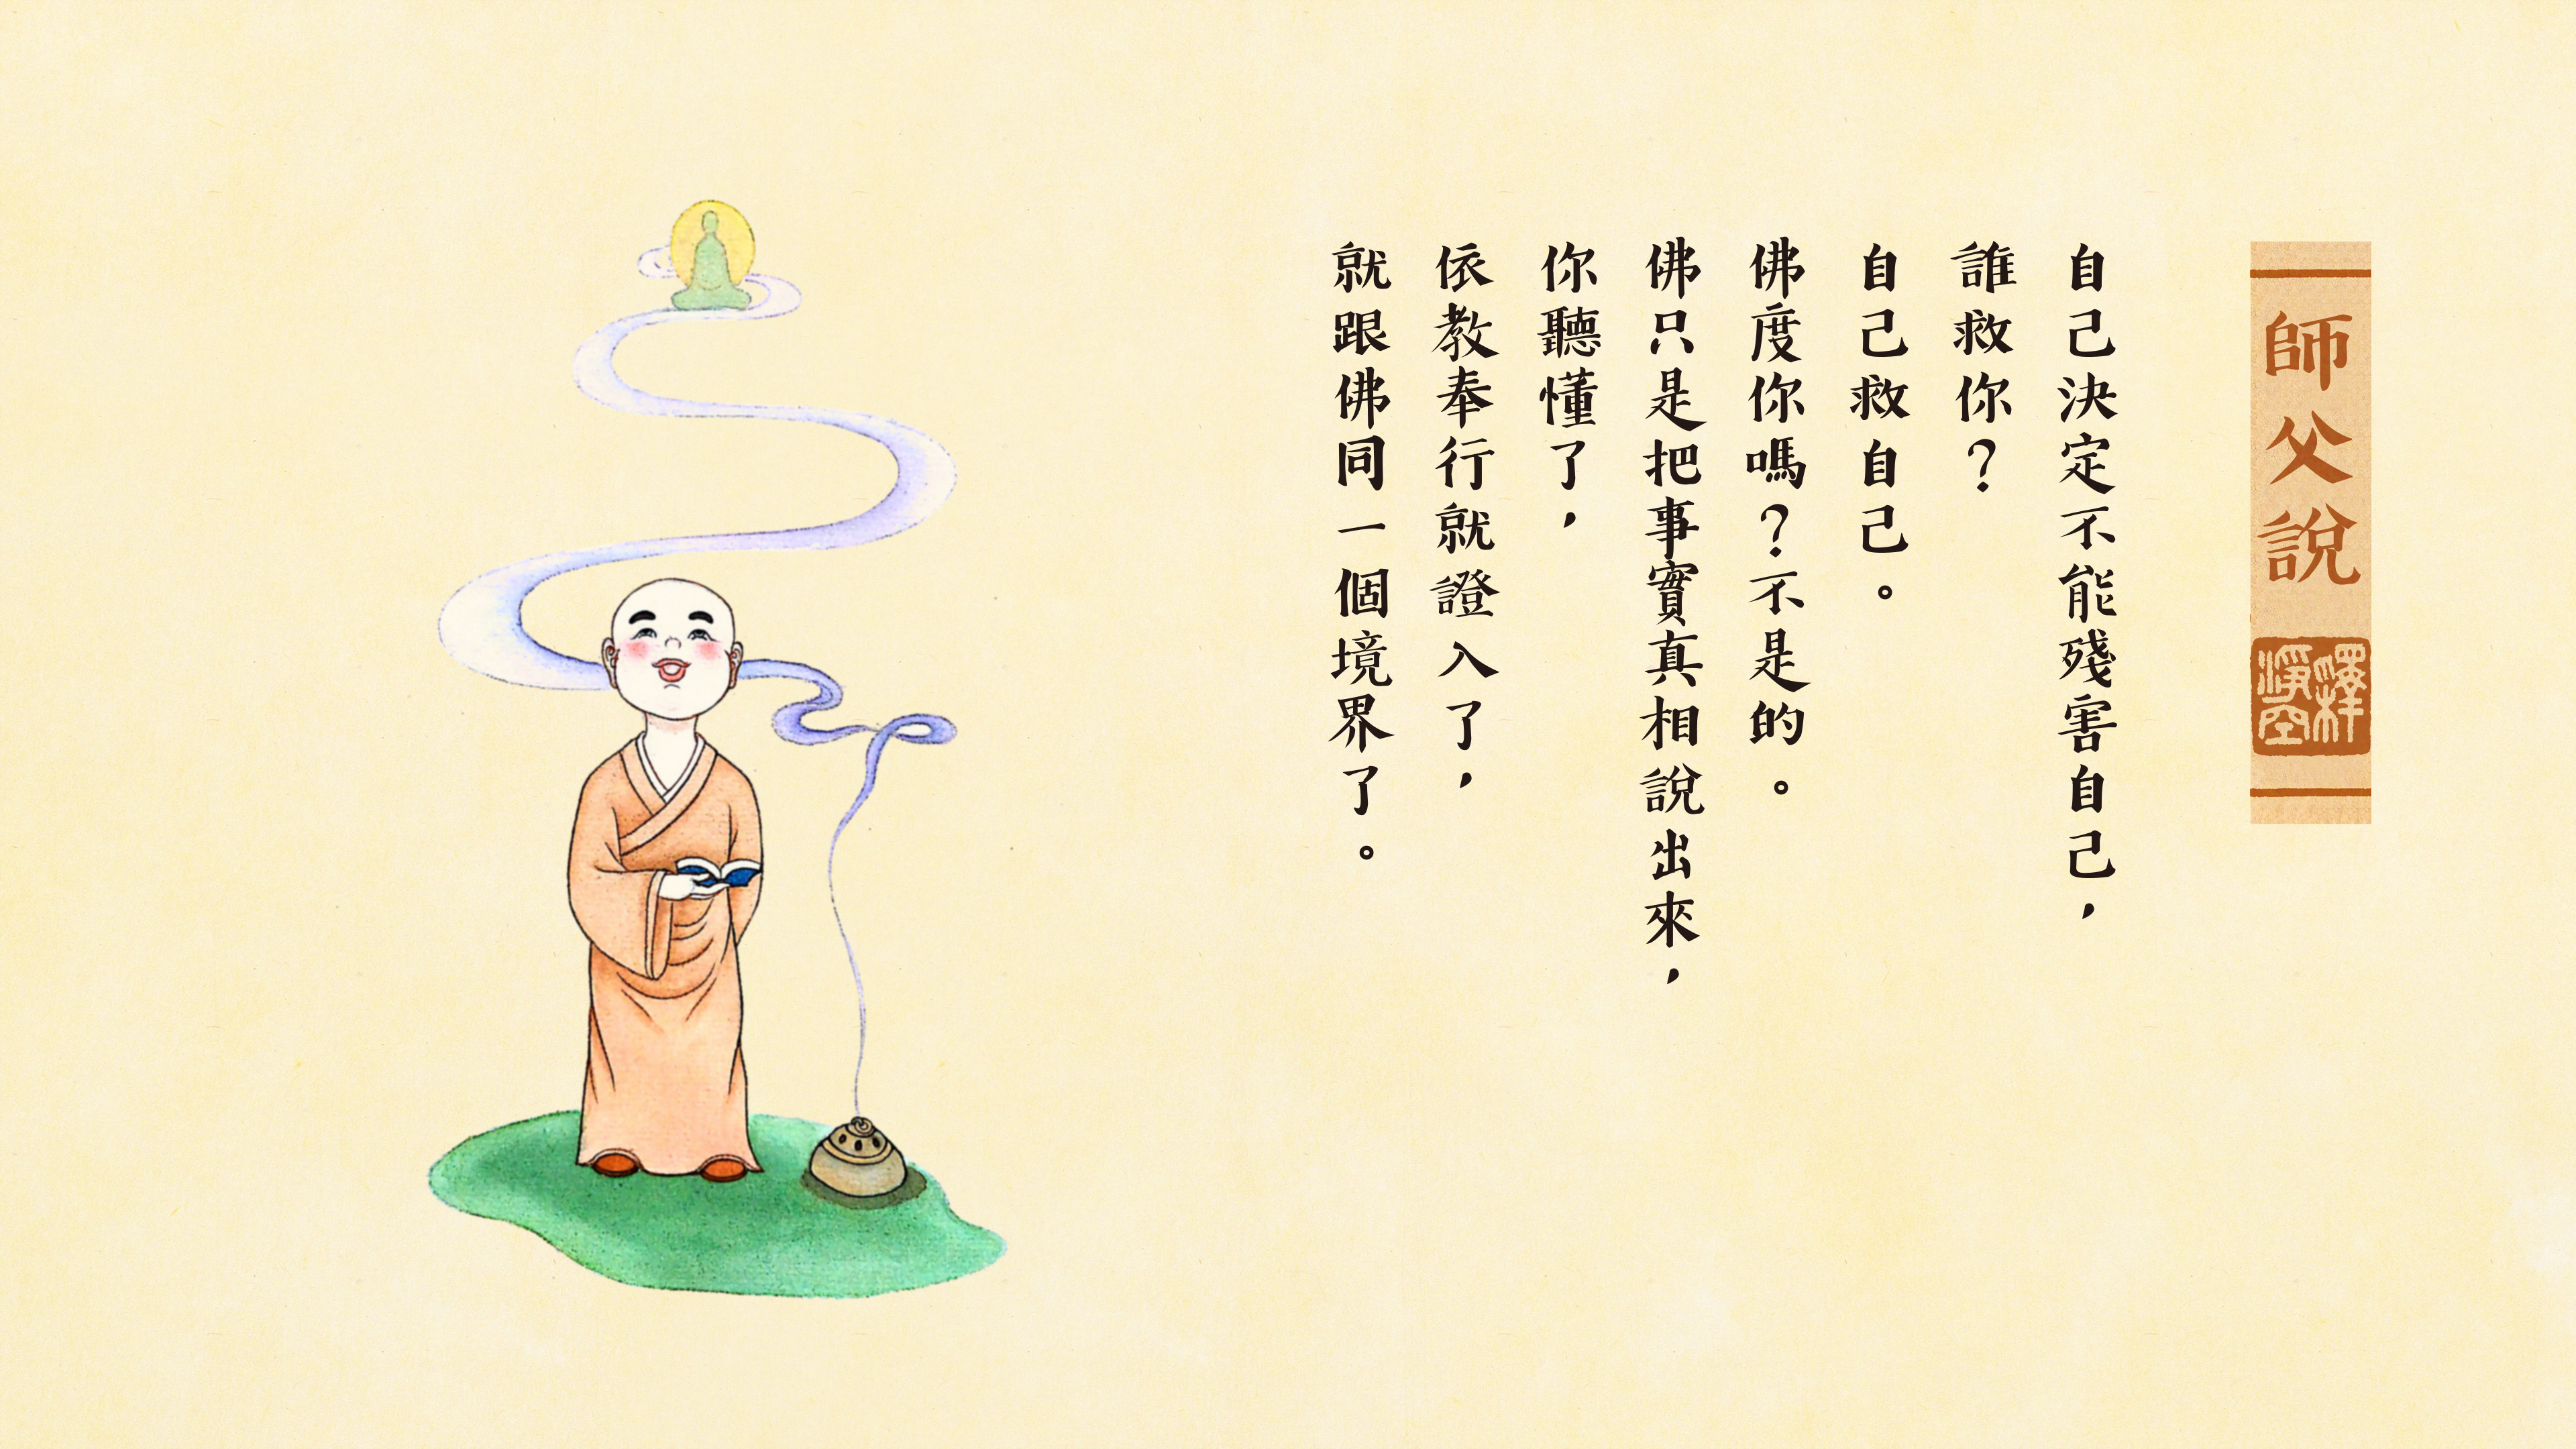 師父說
釋淨空
自己決定不能殘害自己，
誰救你？
自己救自己。
佛度你嗎？不是的。
佛只是把事實真相說出來，
你聽懂了，
依教奉行就證入了，
就跟佛同一個境界了。